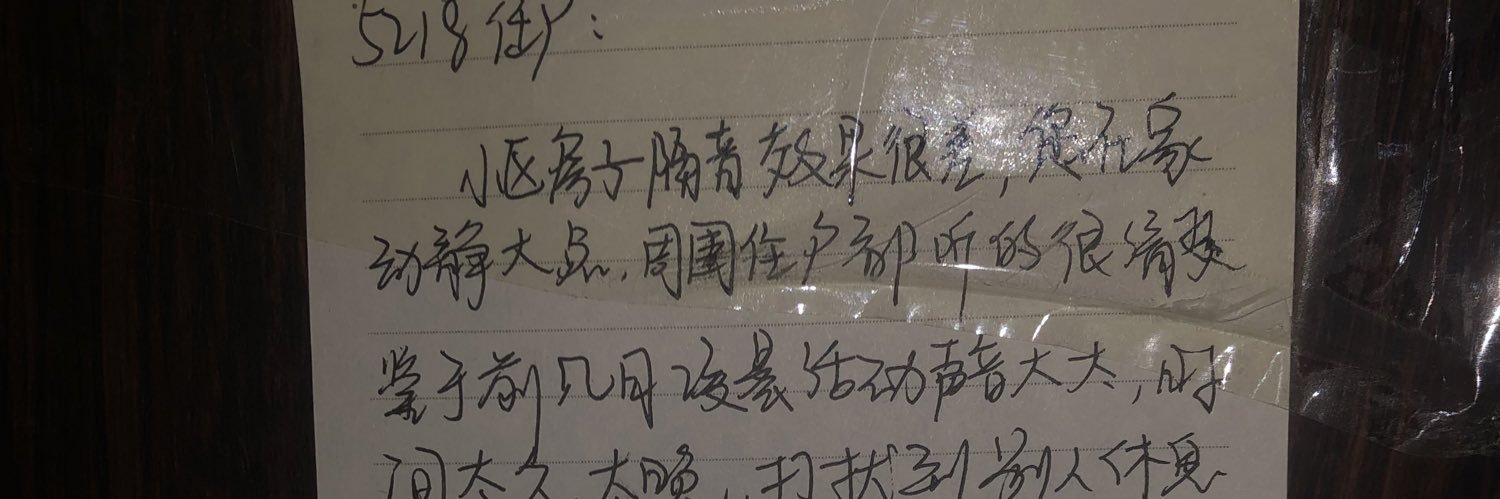 5218住户:
小区房子隔音效果很差,您在家
动静大点,周围住户都听的很清楚
鉴于前几月夜晨活动声音太大,时
间太久、太晚,打扰到别人休息